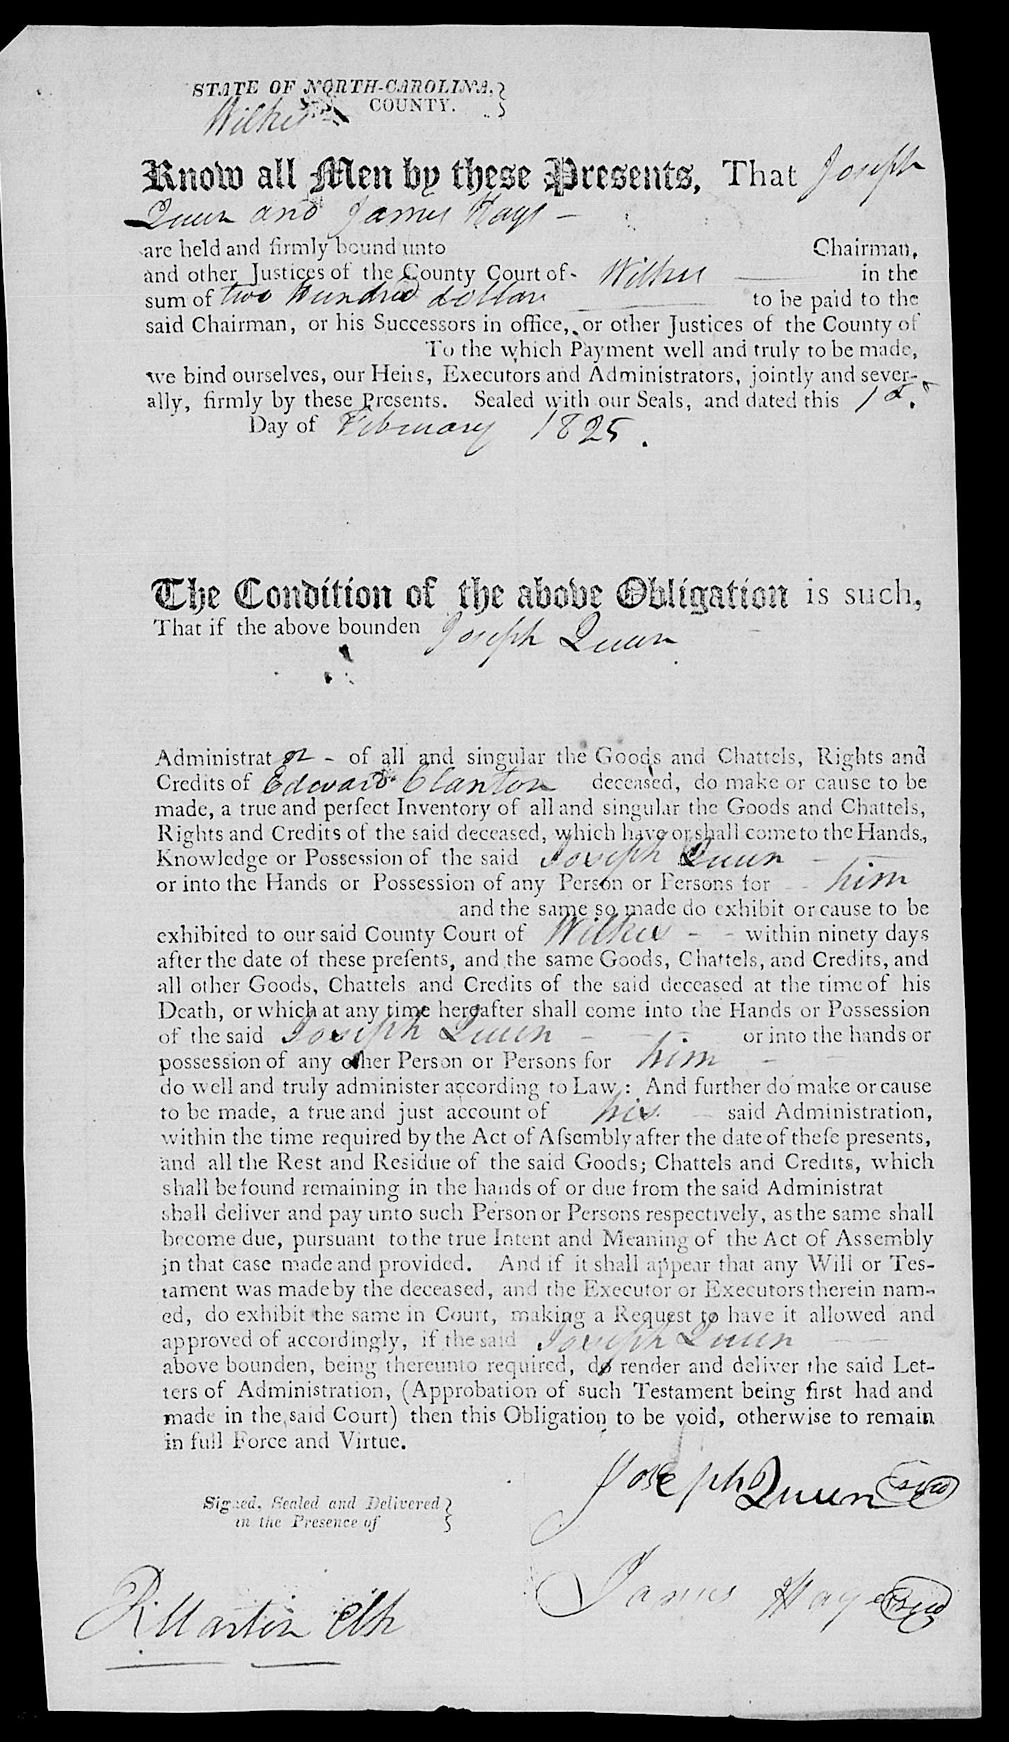 STATE OF NORTH-CAROLINA,
Wilkes COUNTY.
Know all Men by these Presents, That Joseph
Queen and James Hays -
are held and firmly bound unto Chairman,
and other Justices of the County Court of Wilkes in the
sum of two Hundred dollars to be paid to the
said Chairman, or his Successors in office, or other Justices of the County of
To the which Payment well and truly to be made,
we bind ourselves, our Heirs, Executors and Administrators, jointly and sever-
ally, firmly by these Presents. Sealed with our Seals, and dated this 1st.
Day of February 1825.
The Condition of the above Obligation is such,
That if the above bounden Joseph Queen
Administrat or - of all and singular the Goods and Chattels, Rights and
Credits of Edward Clanton deceased, do make or cause to be
made, a true and perfect Inventory of all and singular the Goods and Chattels,
Rights and Credits of the said deceased, which have or shall come to the Hands,
Knowledge or Possession of the said Joseph Queen -
or into the Hands or Possession of any Person or Persons for - him
and the same so made do exhibit or cause to be
exhibited to our said County Court of Wilkes - - within ninety days
after the date of these presents, and the same Goods, Chattels, and Credits, and
all other Goods, Chattels and Credits of the said deceased at the time of his
Death, or which at any time hereafter shall come into the Hands or Possession
of the said Joseph Queen - or into the hands or
possession of any other Person or Persons for him -
do well and truly administer according to Law: And further do make or cause
to be made, a true and just account of his said Administration,
within the time required by the Act of Assembly after the date of these presents,
and all the Rest and Residue of the said Goods; Chattels and Credits, which
shall be found remaining in the hands of or due from the said Administrat
shall deliver and pay unto such Person or Persons respectively, as the same shall
become due, pursuant to the true Intent and Meaning of the Act of Assembly
in that case made and provided. And if it shall appear that any Will or Tes-
tament was made by the deceased, and the Executor or Executors therein nam-
ed, do exhibit the same in Court, making a Request to have it allowed and
approved of accordingly, if the said Joseph Queen
above bounden, being thereunto required, do render and deliver the said Let-
ters of Administration, (Approbation of such Testament being first had and
made in the said Court) then this Obligation to be void, otherwise to remain
in full Force and Virtue.
Joseph Queen
Signed, Sealed and Delivered
in the Presence of
James Hays
R. Martin Clk